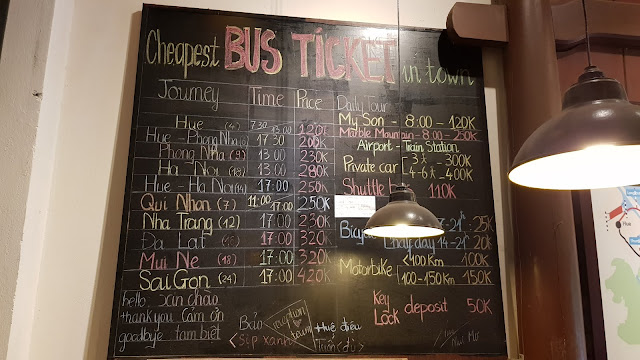 Cheapest BUS TICKET in town
Journey Time Price
Hue (4) 7:30 13:00 120K
Hue - Phong Nha 17:30 200K
Phong Nha (9) 13:00 230K
Ha Noi (18) 13:00 280K
Hue - Ha Noi 17:00 250K
Qui Nhon (7) 11:00 17:00 250K
Nha Trang (12) 17:00 230K
Da Lat 17:00 320K
Mui Ne (18) 17:00 320K
SaiGon (24) 17:00 420K
hello xin chào
thank you cảm ơn
goodbye tạm biệt
Bảo
<Sip xanh>
+Huệ điệu
Daily Tour
My Son - 8:00 - 120K
Marble Mountain - 8:00 - 250K
Airport - Train Station
Private car 3 - 300K
4-6 - 400K
Shuttle 110K
7-21 25K
14-21 20K
Motorbike <100km 100K
100-150km 150K
Key Lock deposit 50K